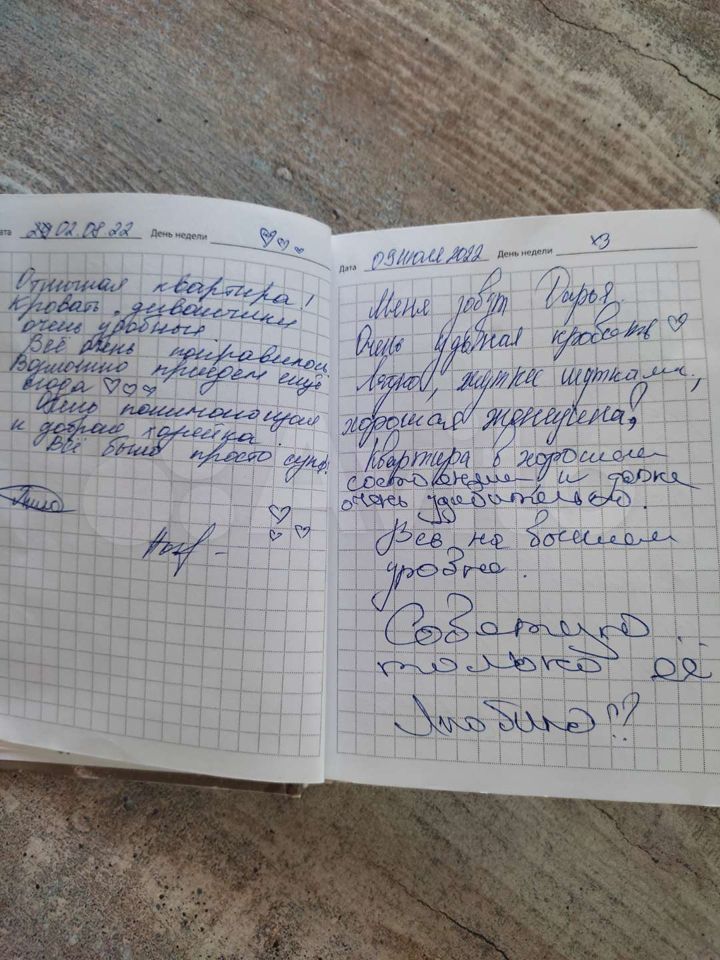 Дата 02.08.22 День недели
Отличная квартира!
Кровать, диванчики
очень удобные
Всё очень понравилось
приедем ещё
сюда
понимающая
и добрая хозяйка.
Всё было просто супер!
Дата 09 июля 2022 День недели х3
Меня зовут Дарья.
Очень удобная кровать
шутками,
хорошая женщина,
Квартира в хорошем
состоянии и даже
очень удивительно.
Всё на высшем
уровне.
Советую
только её
Люблю??